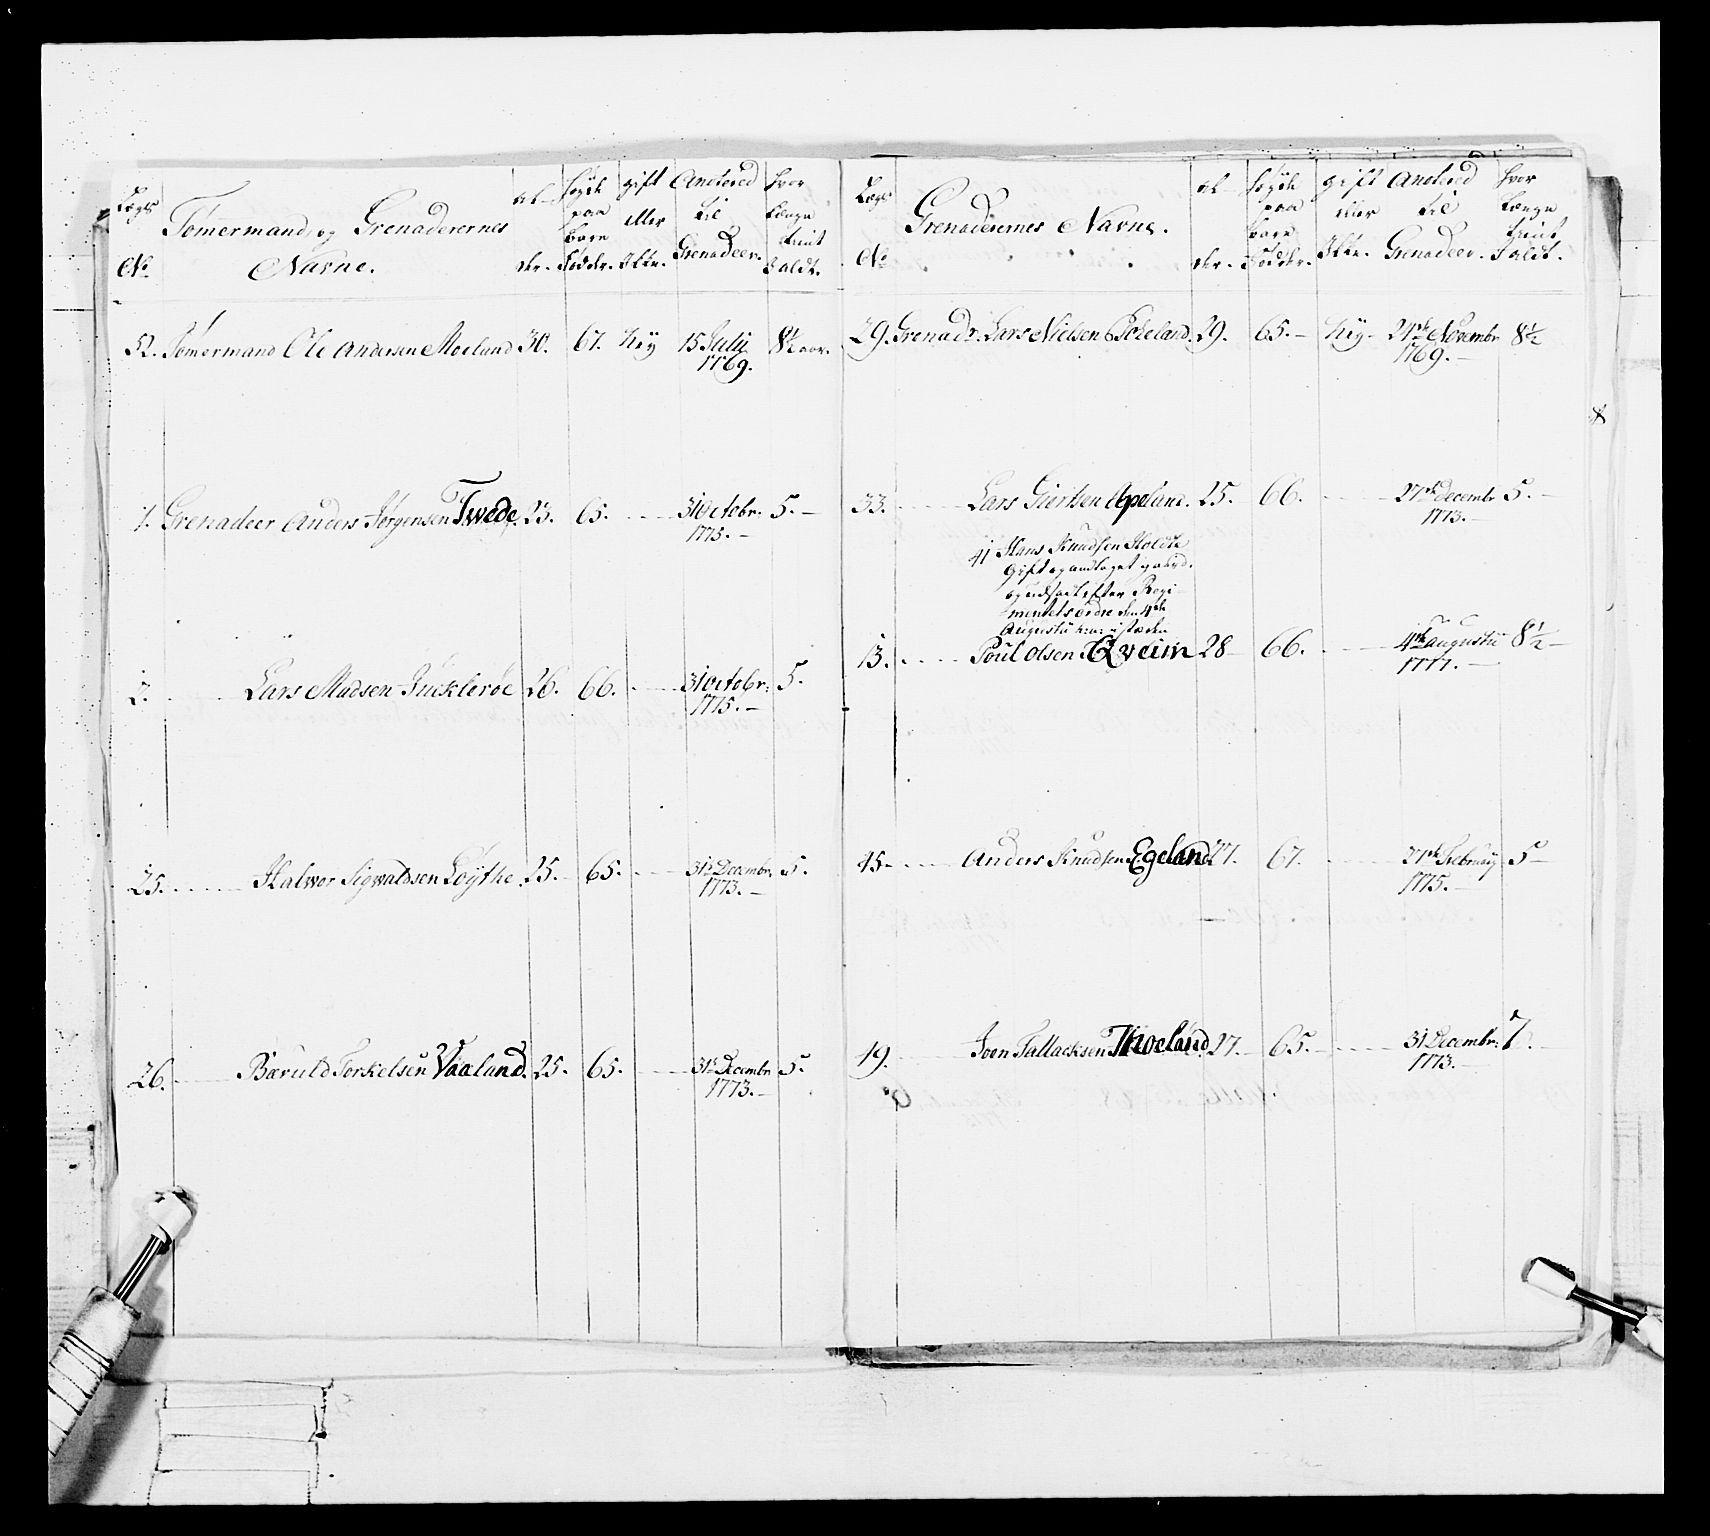 Lægs No
Tømermand, og Grenaderernes Navne.
al- der.
høyde paa bare Fødder.
gift eller Ikke.
Anotered til Grenadeer.
hvor Længe tient
52. Tømermand Ole Andersen Moelund 30. 67. Ney 15 July 1769. 8½ aar.
1. Grenadeer Anders Jørgensen Twede 23. 65. 31 Octobr: 1775. 5.
2. Lars Madsen 26. 66. 31 Octobr: 1775. 5.
25. Halwor Sigwaldsen Løythe. 25. 65. 31 Decembr: 1773. 5.
26. Baruld Torkelsen Vaaland. 25. 65. 31 Decembr 1773. 5.
Lægs No
Grenaderernes Navne.
al- der.
høyde paa bare Fødder.
gift eller Ikke.
Anotered til Grenadeer.
hvor Længe tient
29. Grenadr. Lars Nielsen 29. 65. Ney 24de Novembr 1769. 8½
33. Lars Giertsen Apeland. 25. 66. 27de Decembr 1773. 5.
41 Hans Knudsen Holdte
Gift og
og udsat efter Regi-
mentets ordre den 4de
Augustii
13. Poul Olsen Qveim 28 66. 4de Augustii 1777. 8½
45. Anders Knudsen Egeland 27. 67. 27de Februarij 1775. 5
49. Joen Tallacksen Thoeland 27. 65. 31 Decembr: 1773. 7.